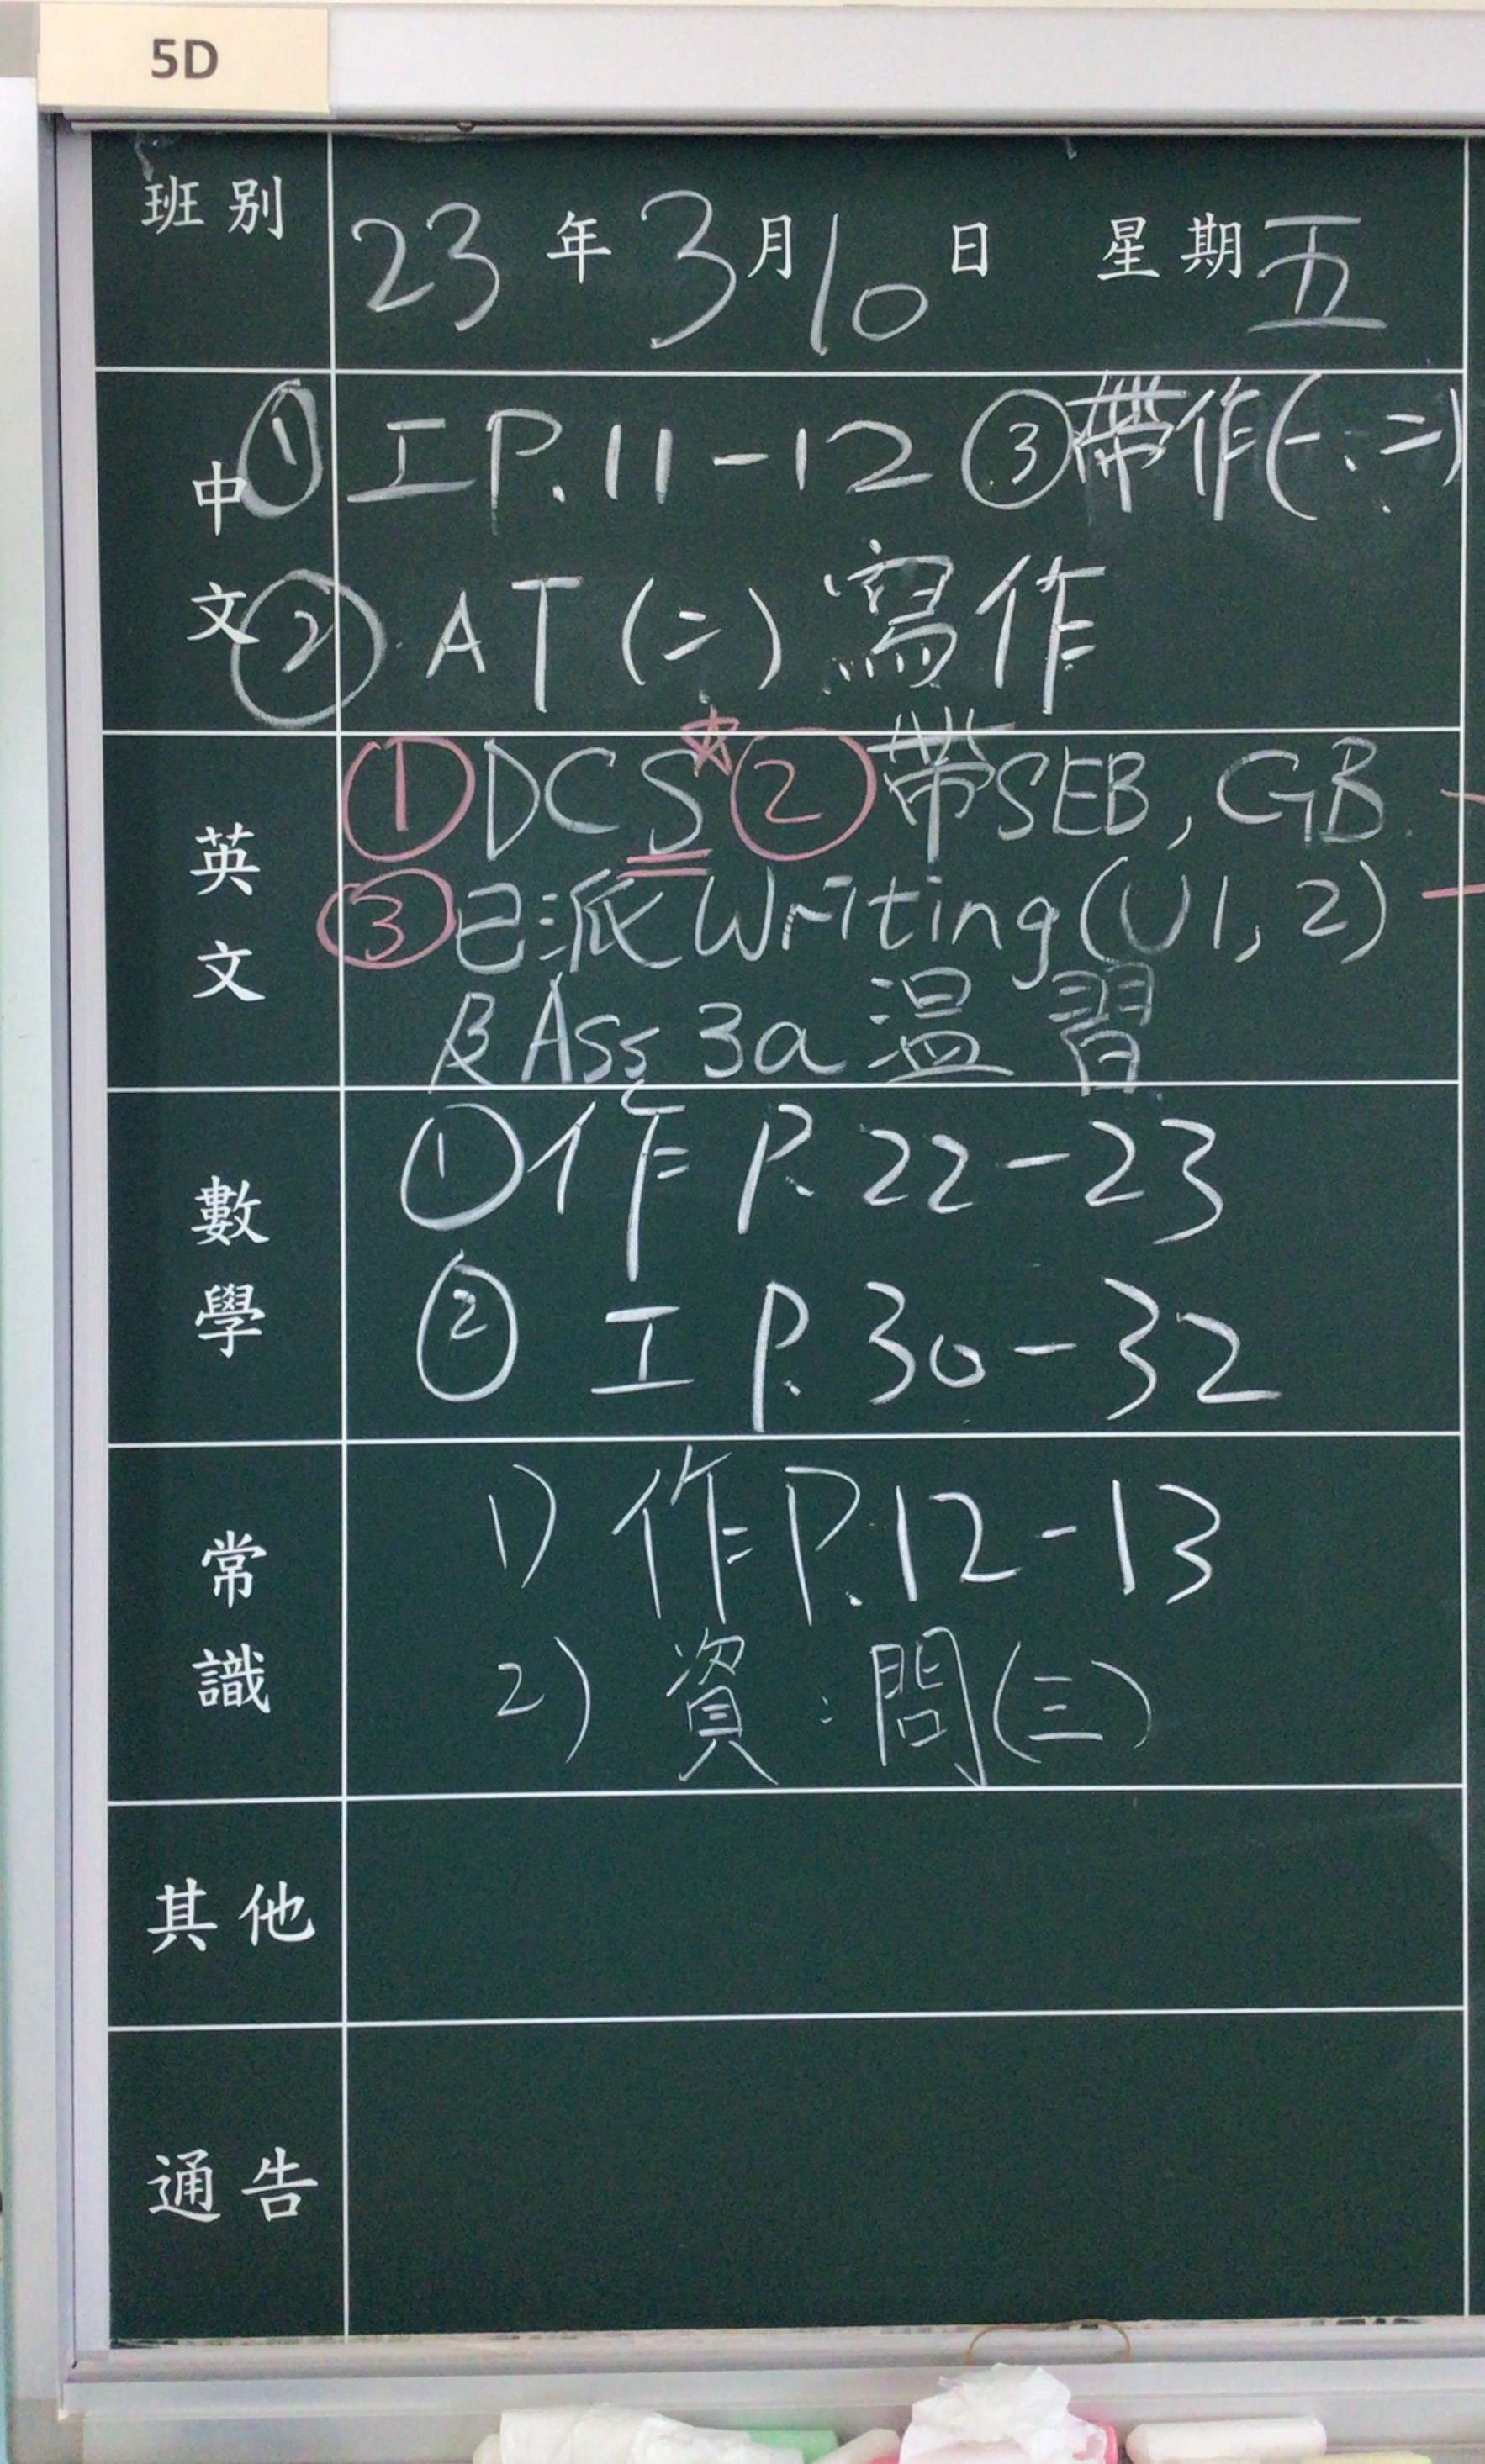 5D
班別 23年3月10日 星期五
中文 ①工P.11-12 ③帶作(一、二)
②AT(二)寫作
英文 ①DCS☆ ②帶SEB, GB
③已派Writing(U1, 2)
及Ass 3a 温習
數學 ①作P.22-23
②工P.30-32
常識 1) 作P.12-13
2) 資:問(三)
其他
通告